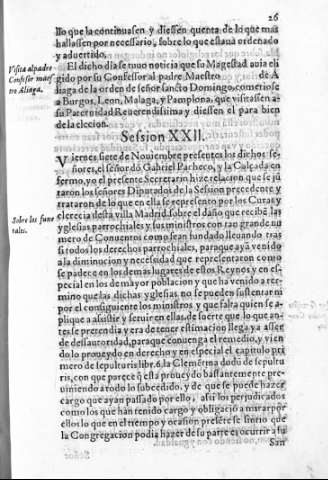 26
llo que la continuasen y diessen quenta de lo que mas
hallassen por necessario, sobre lo que estaua ordenado
y aduertido.
Visita al padre
Confessor maes
tro Aliaga.
El dicho dia se tuuo noticia que su Magestad auia ele
gido por su Confessor al padre Maestro de A
liaga de la orden de señor santo Domingo, cometiose
a Burgos, Leon, Malaga, y Pamplona, que visitassen a
su Paternidad Reuerendissima y diessen el para bien
de la elecion.
Session XXII.
Viernes siete de Nouiembre presentes los dichos se-
ñores, el señor dõ Gabriel Pacheco, y la Calçada en
fermo, yo el presente Secretario hize relacion que se jũ
taron los señores Diputados de la Session precedente y
trataron de lo que en ella se represento por los Curas y
Sobre los fune
rales.
clerecia desta villa Madrid sobre el daño que recibẽ las
yglesias parrochiales y sus ministros con tan grande nu
mero de Conuentos como se an fundado lleuando tras
si todos los derechos parrochiales, para que aya venido
a la diminucion y necessidad que representaron como
se padece en los demas lugares de estos Reynos y en es-
pecial en los de mayor poblacion y que ha venido a ter-
mino que las dichas yglesias no se pueden sustentar ni
por el consiguiente los ministros y que falta quien se a-
plique a assistir y seruir en ellas, de suerte que lo que an-
tes se pretendia y era de tener estimacion llega ya a ser
de desautoridad, para que conuenga el remedio, y vien
do lo proueydo en derecho y en especial el capitulo pri
mero de sepulturis lib. 6. la Clementina dudũ de sepultu
ris, con que parece q̃ esta proueydo bastantemente pre-
uiniendo a todo lo subcedido, y de que se puede hazer
cargo que ayan passado por ello, assi los perjudicados
como los que han tenido cargo y obligaciõ a mirar por
ellos lo que en el tiempo y ocasion presẽte se siente que
la Congregacion podia hazer de su parte es ocurrir a su
San